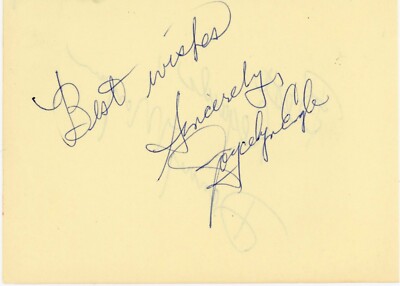 Best wishes
Sincerely,
Joycelyn